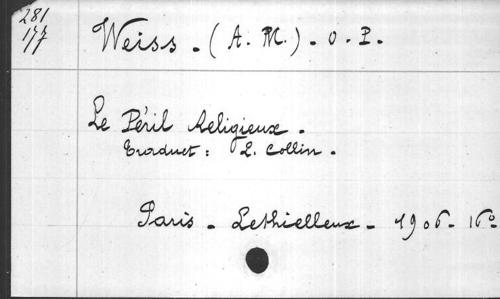 281
177
Weiss - (A. M.) - O. P.
Le Péril Religieux.
Traduct: L. Collin.
Paris - Lethielleux - 1906 - 16°